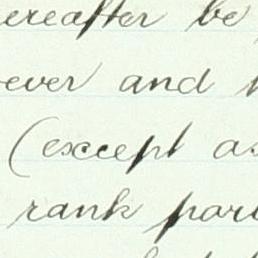 ereafter be
ever and
(except as
rank par